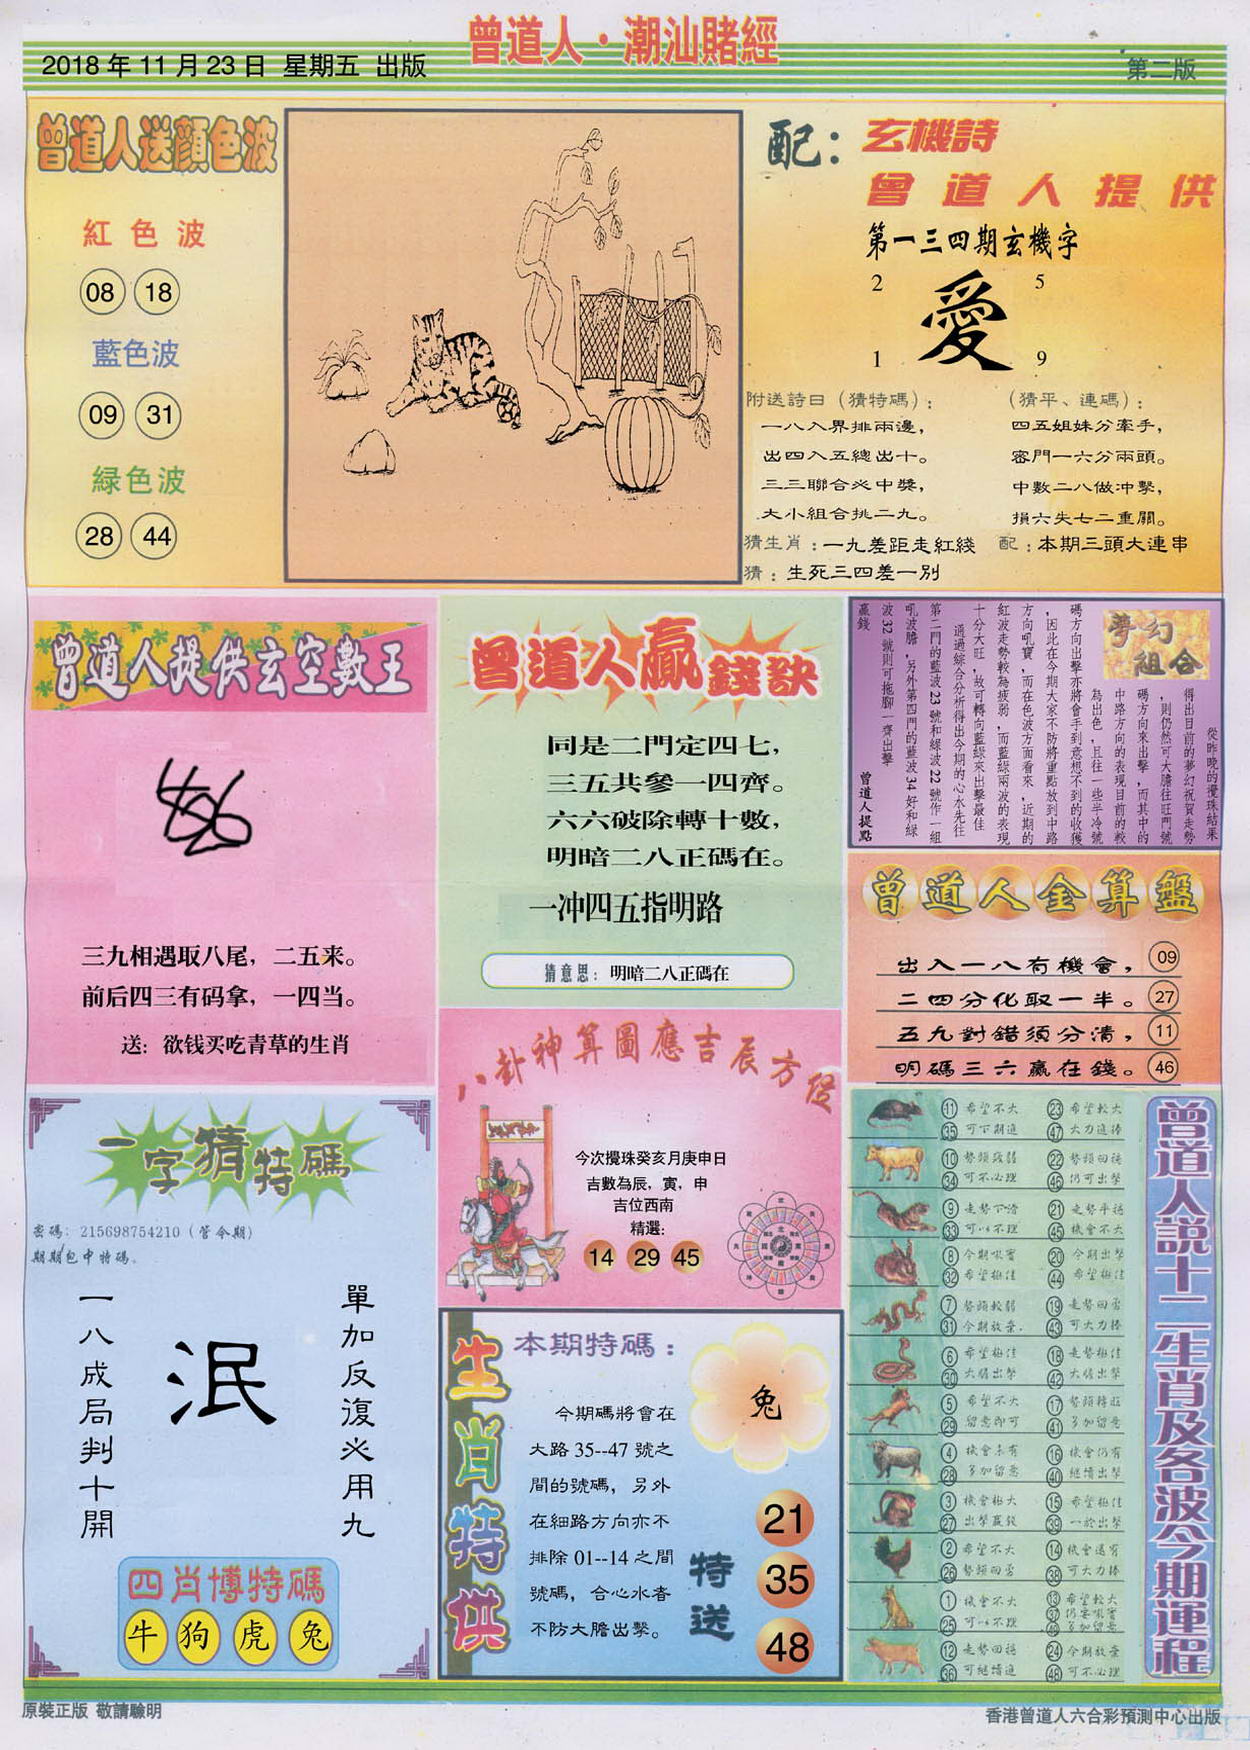 曾道人·潮汕賭經
2018年11月23日 星期五 出版
第二版
曾道人送顔色波
紅色波
08 18
藍色波
09 31
緑色波
28 44
配：玄機詩
曾道人提供
第一三四期玄機字
2 5
愛
1 9
附送詩曰（猜特碼）：
一八入界排兩邊，
出四入五總出十。
三三聯合必中獎，
大小組合挑二九。
（猜平、連碼）：
四五姐妹分牽手，
密門一六分兩頭。
中數二八做冲擊，
損六失七二重關。
猜生肖：一九差距走紅綫
配：本期三頭大連串
猜：生死三四差一别
曾道人提供玄空數王
三九相遇取八尾，二五来。
前后四三有码拿，一四当。
送：欲钱买吃青草的生肖
曾道人贏錢訣
同是二門定四七，
三五共參一四齊。
六六破除轉十數，
明暗二八正碼在。
一冲四五指明路
猜意思：明暗二八正碼在
夢幻
組合
從昨晚的攪珠結果
得出目前的夢幻祝賀走勢
，則仍然可大膽往旺門號
碼方向來出擊，而其中的
中路方向的表現目前的較
為出色，且往一些半冷號
碼方向出擊亦將會手到意想不到的收獲
，因此在今期大家不防將重點放到中路
方向吼寶，而在色波方面看來，近期的
紅波走勢較為疲弱，而藍緑兩波的表現
十分大旺，故可轉向藍緑來出擊最佳
通過綜合分析得出今期的心水先往
第二門的藍波23號和緑波22號作一組
吼波膽，另外第四門的藍波34好和緑
波32號則可拖脚一齊出擊
贏錢
曾道人提點
曾道人金算盤
出入一八有機會，09
二四分化取一半。27
五九對錯須分清，11
明碼三六贏在錢。46
八卦神算圖應吉辰方位
今次攪珠癸亥月庚申日
吉數為辰，寅，申
吉位西南
精選：
14 29 45
一字猜特碼
密碼：215698754210（管令期）
期期包中特碼。
單加反復必用九
泯
一八成局判十開
四肖博特碼
牛 狗 虎 兔
生肖特供
本期特碼：
兔
今期碼將會在
大路35--47號之
間的號碼，另外
在細路方向亦不
排除01--14之間
號碼，合心水者
不防大膽出擊。
特送
21
35
48
曾道人説十二生肖及各波今期運程
11 希望不大 23 希望較大
35 可下期進 47 大力進捧
10 勢頭致弱 22 勢頭回穩
34 可不必理 46 仍可出擊
9 走勢下滑 21 走勢平穩
33 可以不理 45 機會不大
8 今期吼實 20 今期出擊
32 希望極佳 44 希望極佳
7 勢頭較弱 19 走勢回勇
31 今期放棄. 43 可大力捧
6 希望極佳 18 走勢極佳
30 大膽出擊 42 大膽出擊
5 希望不大 17 勢頭轉旺
29 留意即可 41 多加留意
4 機會未有 16 機會仍有
28 多加留意 40 繼續出擊
3 機會極大 15 希望極佳
27 出擊贏錢 39 一於出擊
2 希望不大 14 機會還有
26 勢頭回勇 38 可大力捧
1 機會不大 13 希望較大
25 可以不理 37 仍要吼實
49 多加留意
12 走勢回穩 24 今期放棄
36 可繼續進 48 可不必理
原裝正版 敬請驗明
香港曾道人六合彩預測中心出版